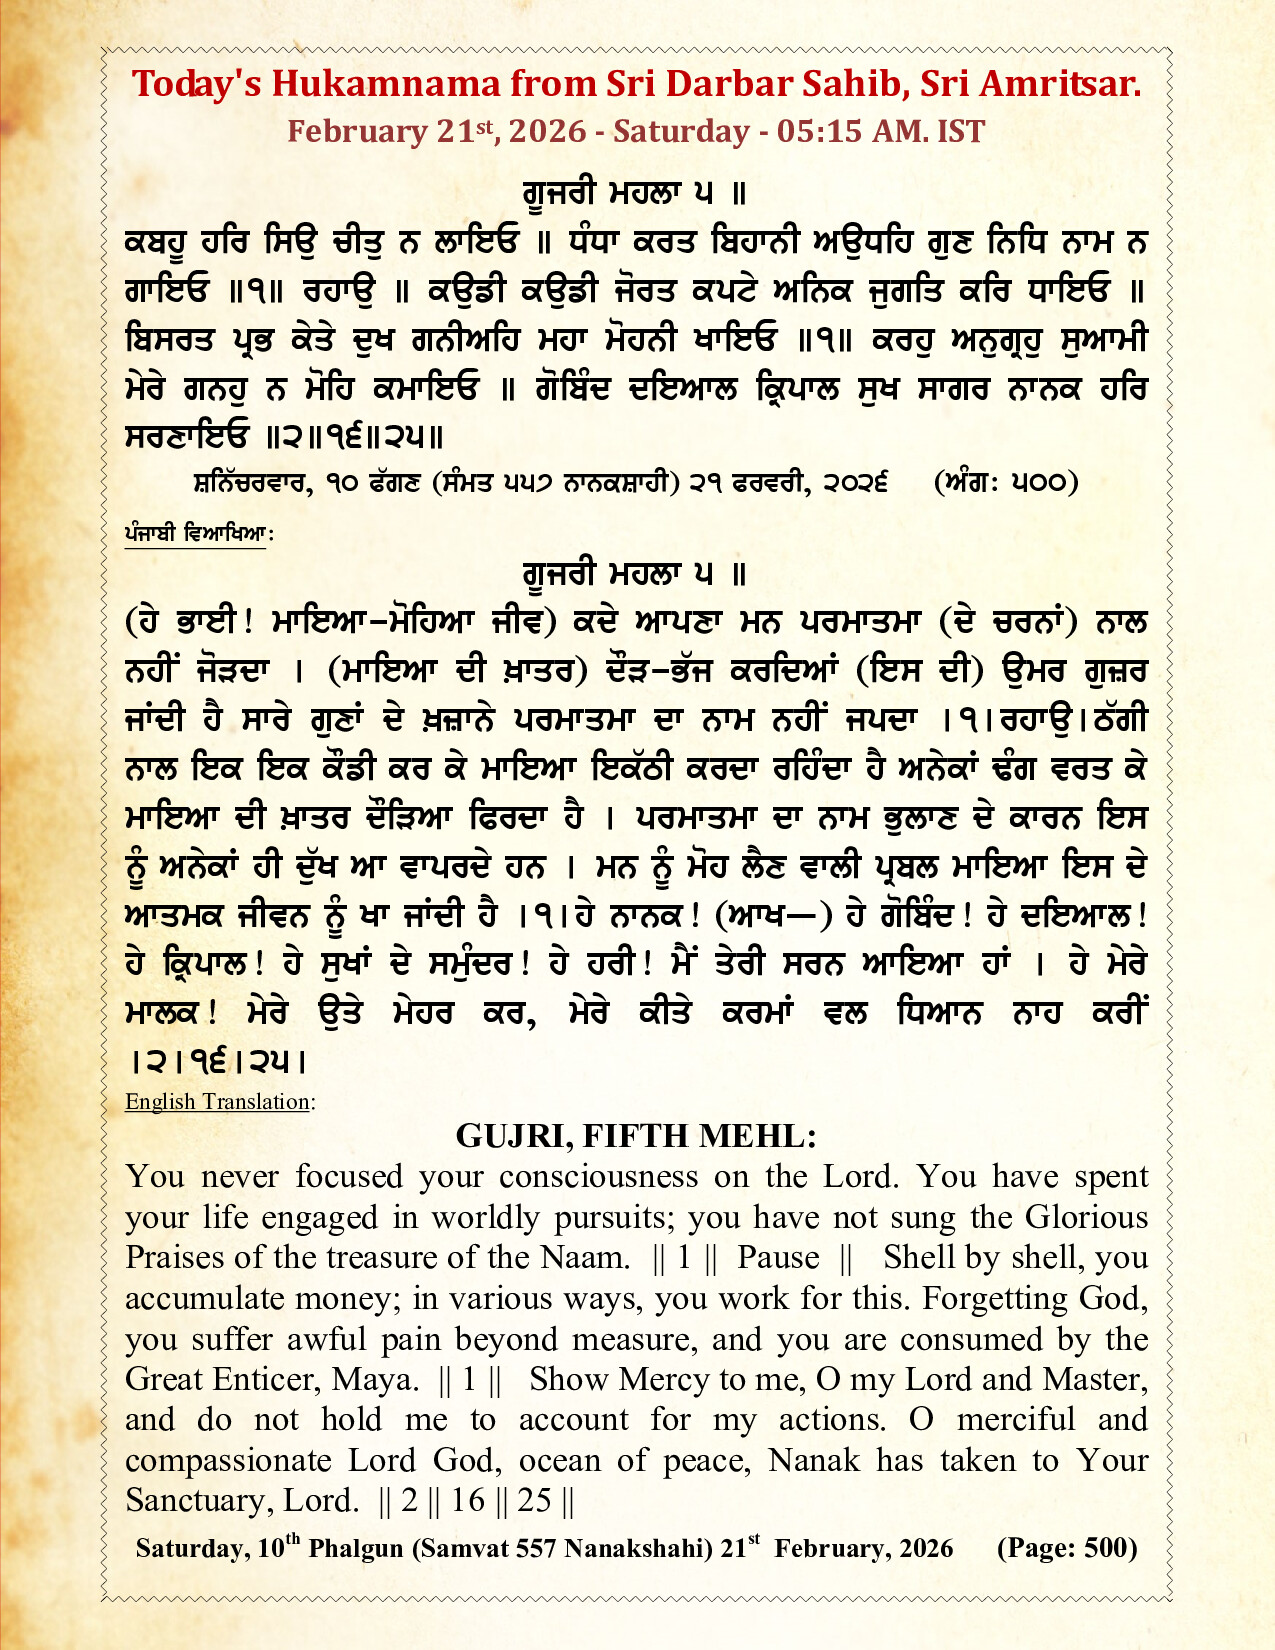 Today's Hukamnama from Sri Darbar Sahib, Sri Amritsar.
February 21st, 2026 - Saturday - 05:15 AM. IST
ਗੂਜਰੀ ਮਹਲਾ ੫ ॥
ਕਬਹੂ ਹਰਿ ਸਿਉ ਚੀਤੁ ਨ ਲਾਇਓ ॥ ਧੰਧਾ ਕਰਤ ਬਿਹਾਨੀ ਅਉਧਹਿ ਗੁਣ ਨਿਧਿ ਨਾਮ ਨ
ਗਾਇਓ ॥੧॥ ਰਹਾਉ ॥ ਕਉਡੀ ਕਉਡੀ ਜੋਰਤ ਕਪਟੇ ਅਨਿਕ ਜੁਗਤਿ ਕਰਿ ਧਾਇਓ ॥
ਬਿਸਰਤ ਪ੍ਰਭ ਕੇਤੇ ਦੁਖ ਗਨੀਅਹਿ ਮਹਾ ਮੋਹਨੀ ਖਾਇਓ ॥੧॥ ਕਰਹੁ ਅਨੁਗ੍ਰਹੁ ਸੁਆਮੀ
ਮੇਰੇ ਗਨਹੁ ਨ ਮੋਹਿ ਕਮਾਇਓ ॥ ਗੋਬਿੰਦ ਦਇਆਲ ਕ੍ਰਿਪਾਲ ਸੁਖ ਸਾਗਰ ਨਾਨਕ ਹਰਿ
ਸਰਣਾਇਓ ॥੨॥੧੬॥੨੫॥
ਸ਼ਨਿੱਚਰਵਾਰ, ੧੦ ਫੱਗਣ (ਸੰਮਤ ੫੫੭ ਨਾਨਕਸ਼ਾਹੀ) ੨੧ ਫਰਵਰੀ, ੨੦੨੬ (ਅੰਗ: ੫੦੦)
ਪੰਜਾਬੀ ਵਿਆਖਿਆ:
ਗੂਜਰੀ ਮਹਲਾ ੫ ॥
(ਹੇ ਭਾਈ! ਮਾਇਆ-ਮੋਹਿਆ ਜੀਵ) ਕਦੇ ਆਪਣਾ ਮਨ ਪਰਮਾਤਮਾ (ਦੇ ਚਰਨਾਂ) ਨਾਲ
ਨਹੀਂ ਜੋੜਦਾ । (ਮਾਇਆ ਦੀ ਖ਼ਾਤਰ) ਦੌੜ-ਭੱਜ ਕਰਦਿਆਂ (ਇਸ ਦੀ) ਉਮਰ ਗੁਜ਼ਰ
ਜਾਂਦੀ ਹੈ ਸਾਰੇ ਗੁਣਾਂ ਦੇ ਖ਼ਜ਼ਾਨੇ ਪਰਮਾਤਮਾ ਦਾ ਨਾਮ ਨਹੀਂ ਜਪਦਾ ।੧।ਰਹਾਉ।ਠੱਗੀ
ਨਾਲ ਇਕ ਇਕ ਕੌਡੀ ਕਰ ਕੇ ਮਾਇਆ ਇਕੱਠੀ ਕਰਦਾ ਰਹਿੰਦਾ ਹੈ ਅਨੇਕਾਂ ਢੰਗ ਵਰਤ ਕੇ
ਮਾਇਆ ਦੀ ਖ਼ਾਤਰ ਦੌੜਿਆ ਫਿਰਦਾ ਹੈ । ਪਰਮਾਤਮਾ ਦਾ ਨਾਮ ਭੁਲਾਣ ਦੇ ਕਾਰਨ ਇਸ
ਨੂੰ ਅਨੇਕਾਂ ਹੀ ਦੁੱਖ ਆ ਵਾਪਰਦੇ ਹਨ । ਮਨ ਨੂੰ ਮੋਹ ਲੈਣ ਵਾਲੀ ਪ੍ਰਬਲ ਮਾਇਆ ਇਸ ਦੇ
ਆਤਮਕ ਜੀਵਨ ਨੂੰ ਖਾ ਜਾਂਦੀ ਹੈ ।੧।ਹੇ ਨਾਨਕ! (ਆਖ—) ਹੇ ਗੋਬਿੰਦ! ਹੇ ਦਇਆਲ!
ਹੇ ਕ੍ਰਿਪਾਲ! ਹੇ ਸੁਖਾਂ ਦੇ ਸਮੁੰਦਰ! ਹੇ ਹਰੀ! ਮੈਂ ਤੇਰੀ ਸਰਨ ਆਇਆ ਹਾਂ । ਹੇ ਮੇਰੇ
ਮਾਲਕ! ਮੇਰੇ ਉਤੇ ਮੇਹਰ ਕਰ, ਮੇਰੇ ਕੀਤੇ ਕਰਮਾਂ ਵਲ ਧਿਆਨ ਨਾਹ ਕਰੀਂ
।੨।੧੬।੨੫।
English Translation:
GUJRI, FIFTH MEHL:
You never focused your consciousness on the Lord. You have spent
your life engaged in worldly pursuits; you have not sung the Glorious
Praises of the treasure of the Naam. || 1 || Pause || Shell by shell, you
accumulate money; in various ways, you work for this. Forgetting God,
you suffer awful pain beyond measure, and you are consumed by the
Great Enticer, Maya. || 1 || Show Mercy to me, O my Lord and Master,
and do not hold me to account for my actions. O merciful and
compassionate Lord God, ocean of peace, Nanak has taken to Your
Sanctuary, Lord. || 2 || 16 || 25 ||
Saturday, 10th Phalgun (Samvat 557 Nanakshahi) 21st February, 2026 (Page: 500)